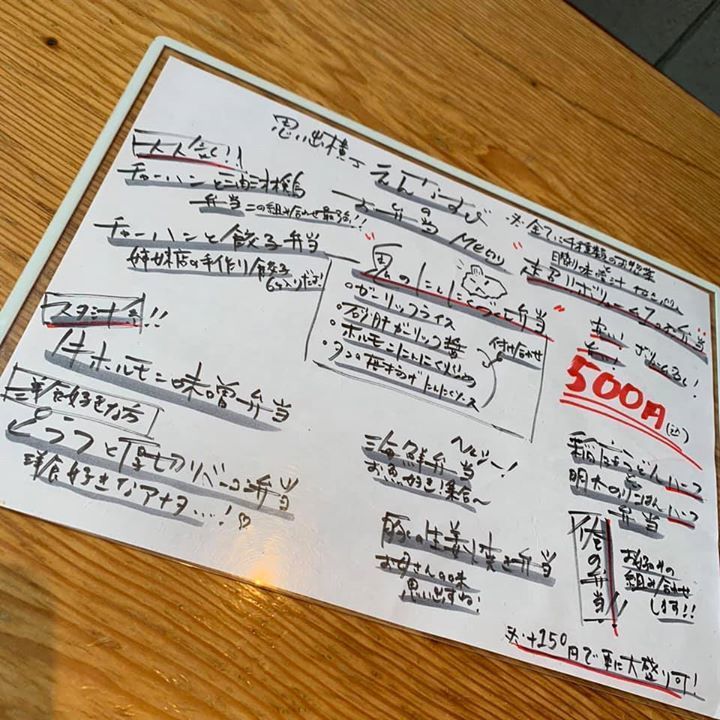 思い出横丁
えんむすび
の
お弁当 MENU
チャーハンと
弁当 この組み合わせ最強!!
チャーハンと餃子弁当
姉妹店の手作り餃子
スタミナ系!!
牛ホルモン味噌弁当
洋食好きな方
厚切りベーコン弁当
洋食好きなアナタ…!♡
"鬼のにんにくづくし弁当"
・ガーリックライス
・砂肝ガーリック醤
・ホルモンにんにく
・タンの唐揚げにんにくソース
付け合わせ
海鮮弁当
ヘルシー!
お魚好き!集合〜
豚の生姜焼き弁当
お母さんの味
思い出すね!
※全て
日替り味噌汁
超
ボリューム
弁当"
安い
500円(込)
稲庭うどんハーフ
と
明太のりごはんハーフ
弁当
俺の弁当!!
お好みの
組み合わせ
します!!
※+150円で更に大盛り可!